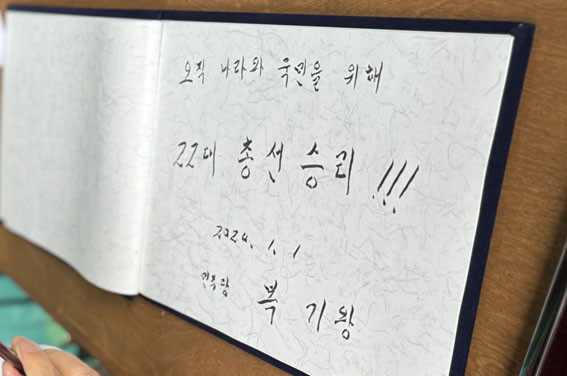 오직 나라와 국민을 위해
22대 총선 승리 !!!
2024. 1. 1
민주당 복기왕